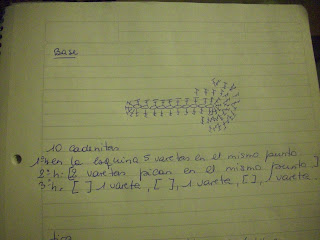 Base
10 cadenitas
1ªh en la esquina 5 varetas en el mismo punto
2ªh: [2 varetas pican en el mismo punto]
3ªh: [ ] 1 vareta, [ ], 1 vareta, [ ], 1 vareta.